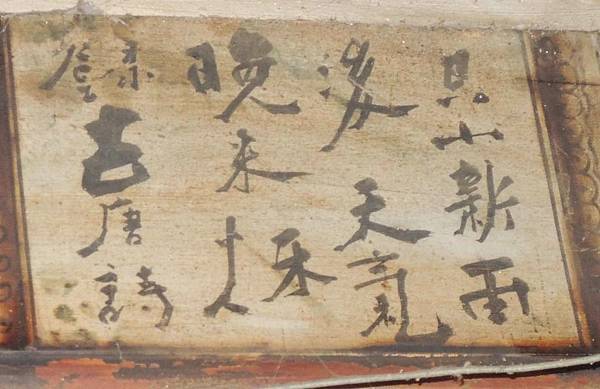 山新雨
後天氣
晚来秋
錄古唐詩